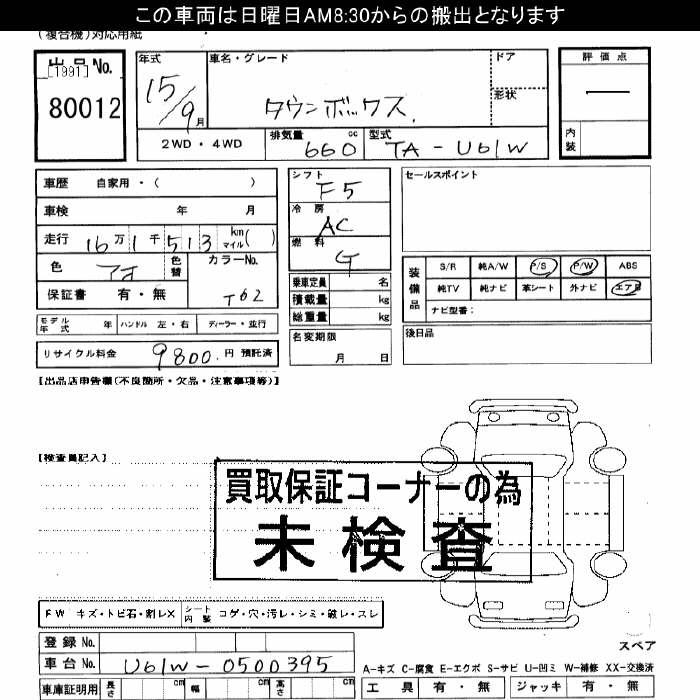 この車両は日曜日AM8:30からの搬出となります
(複合機)対応用紙
出品No. 年式 車名・グレード ドア 評価点
[1991]
80012 15/9月 タウンボックス 形状 —
2WD・4WD 排気量 cc 660 型式 TA-U61W 内装
車歴 自家用・( ) シフト F5 セールスポイント
車検 年 月 冷房 AC
走行 16万1千513 km マイル( ) 燃料 G
色 アオ 色替 カラーNo. T62
保証書 有・無
乗車定員 名
積載量 kg
総重量 kg
装備品 S/R 純A/W P/S P/W ABS
純TV 純ナビ 革シート 外ナビ エアB
ナビ型番:
モデル年式 年 ハンドル 左・右 ディーラー・並行
名変期限 月 日
後日品
リサイクル料金 9800.円 預託済
【出品店申告欄(不良箇所・欠品・注意事項等)】
【検査員記入】
買取保証コーナーの為
未検査
FW キズ・トビ石・割レX シート内装 コゲ・穴・汚レ・シミ・破レ・スレ
登録No.
車台No. U61W-0500395
スペア
A-キズ C-腐食 E-エクボ S-サビ U-凹ミ W-補修 XX-交換済
車庫証明用 長さ cm 幅 cm 高さ cm
工具 有・無 ジャッキ 有・無